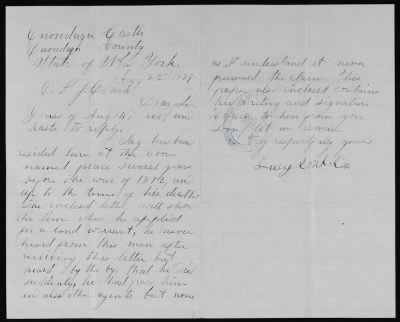 Onondaga Castle
Onondaga County
State of New York.
Aug 22nd 1879
Dear Sir
Yours of Aug 14, rec,
haste to reply.
My husban
resided here at the above
named place several years
before the war of 1812, an
up to the time of his death.
The enclosed letter will show
the time when he applied
for a land warrant, he never
heard from this man after
receiving this letter but
heard, by the by, that he died
suddenly, he had from him
in also other agents but none
as I understand it never
pursued the claim. This
paper also enclosed contains
his writing and signature
hear from you
soon, let me remain
Very respectfully yours
Lucy